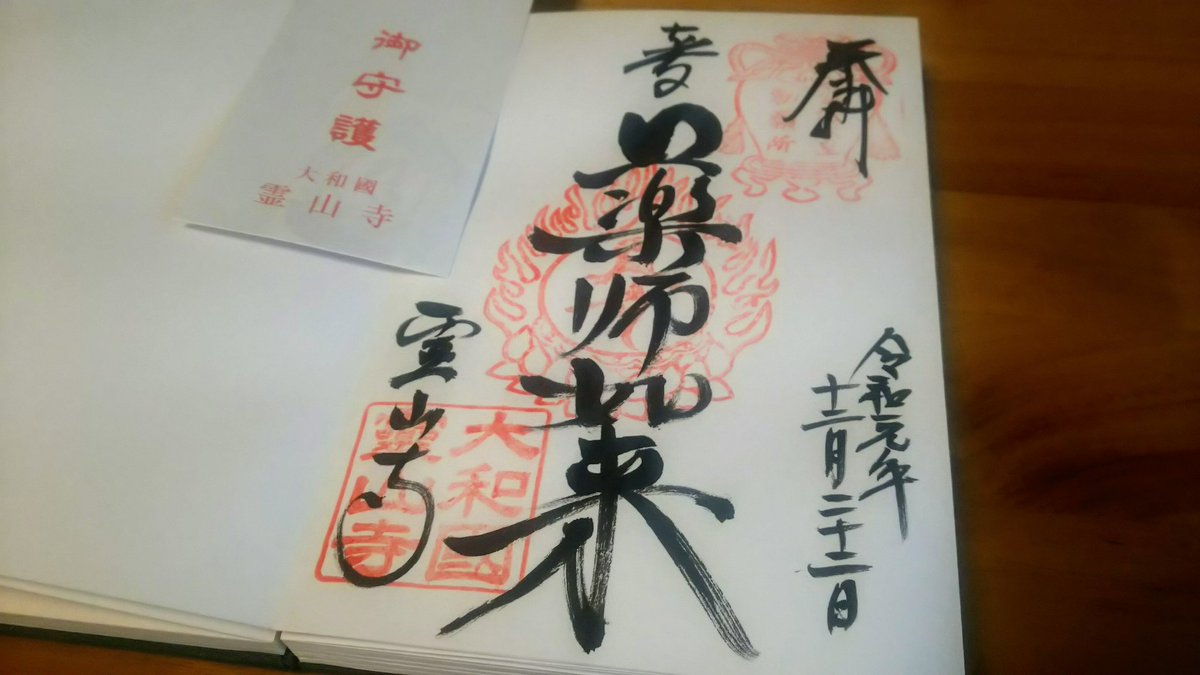 奉拝
薬師如来
霊山寺
大和國
靈山寺
令和元年
十二月二十二日
御守護
大和國
霊山寺